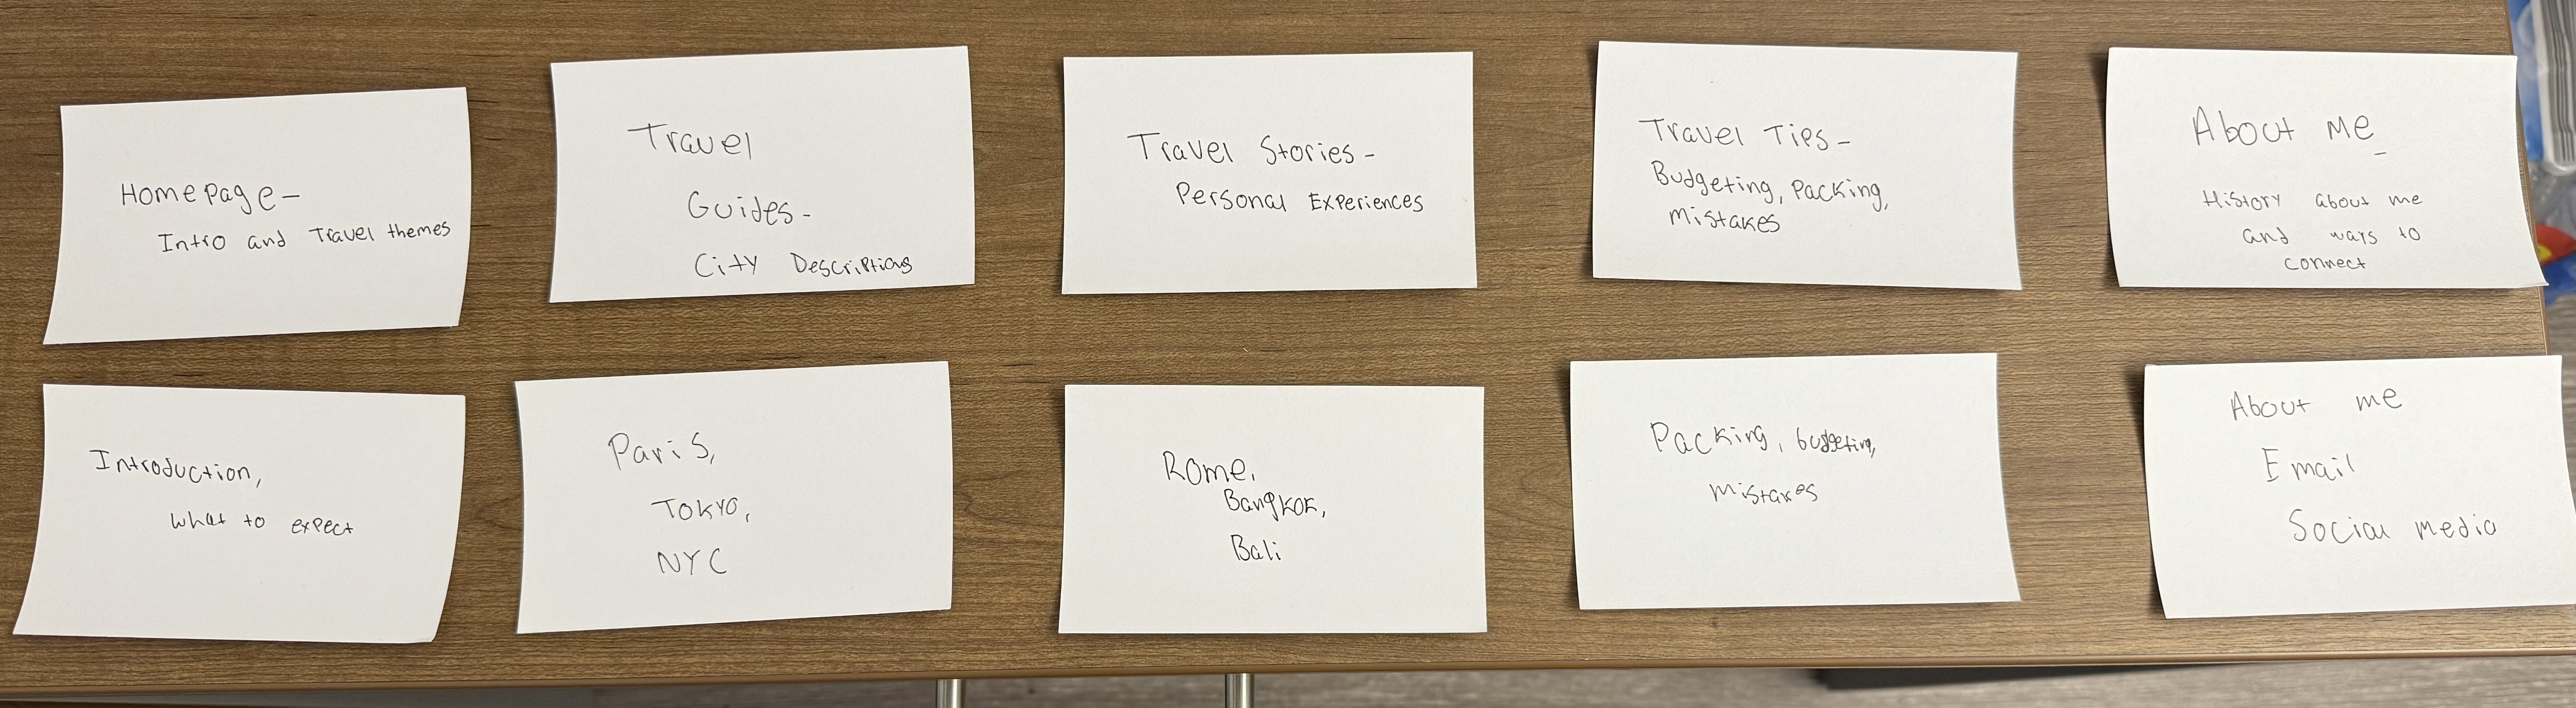 Homepage-
Intro and Travel themes
Travel
Guides-
City Descriptions
Travel Stories-
Personal Experiences
Travel Tips-
Budgeting, Packing,
Mistakes
About Me
History about me
and ways to
connect
Introduction,
what to expect
Paris,
Tokyo,
NYC
Rome,
Bangkok,
Bali
Packing, budgeting,
mistakes
About me
Email
Social media